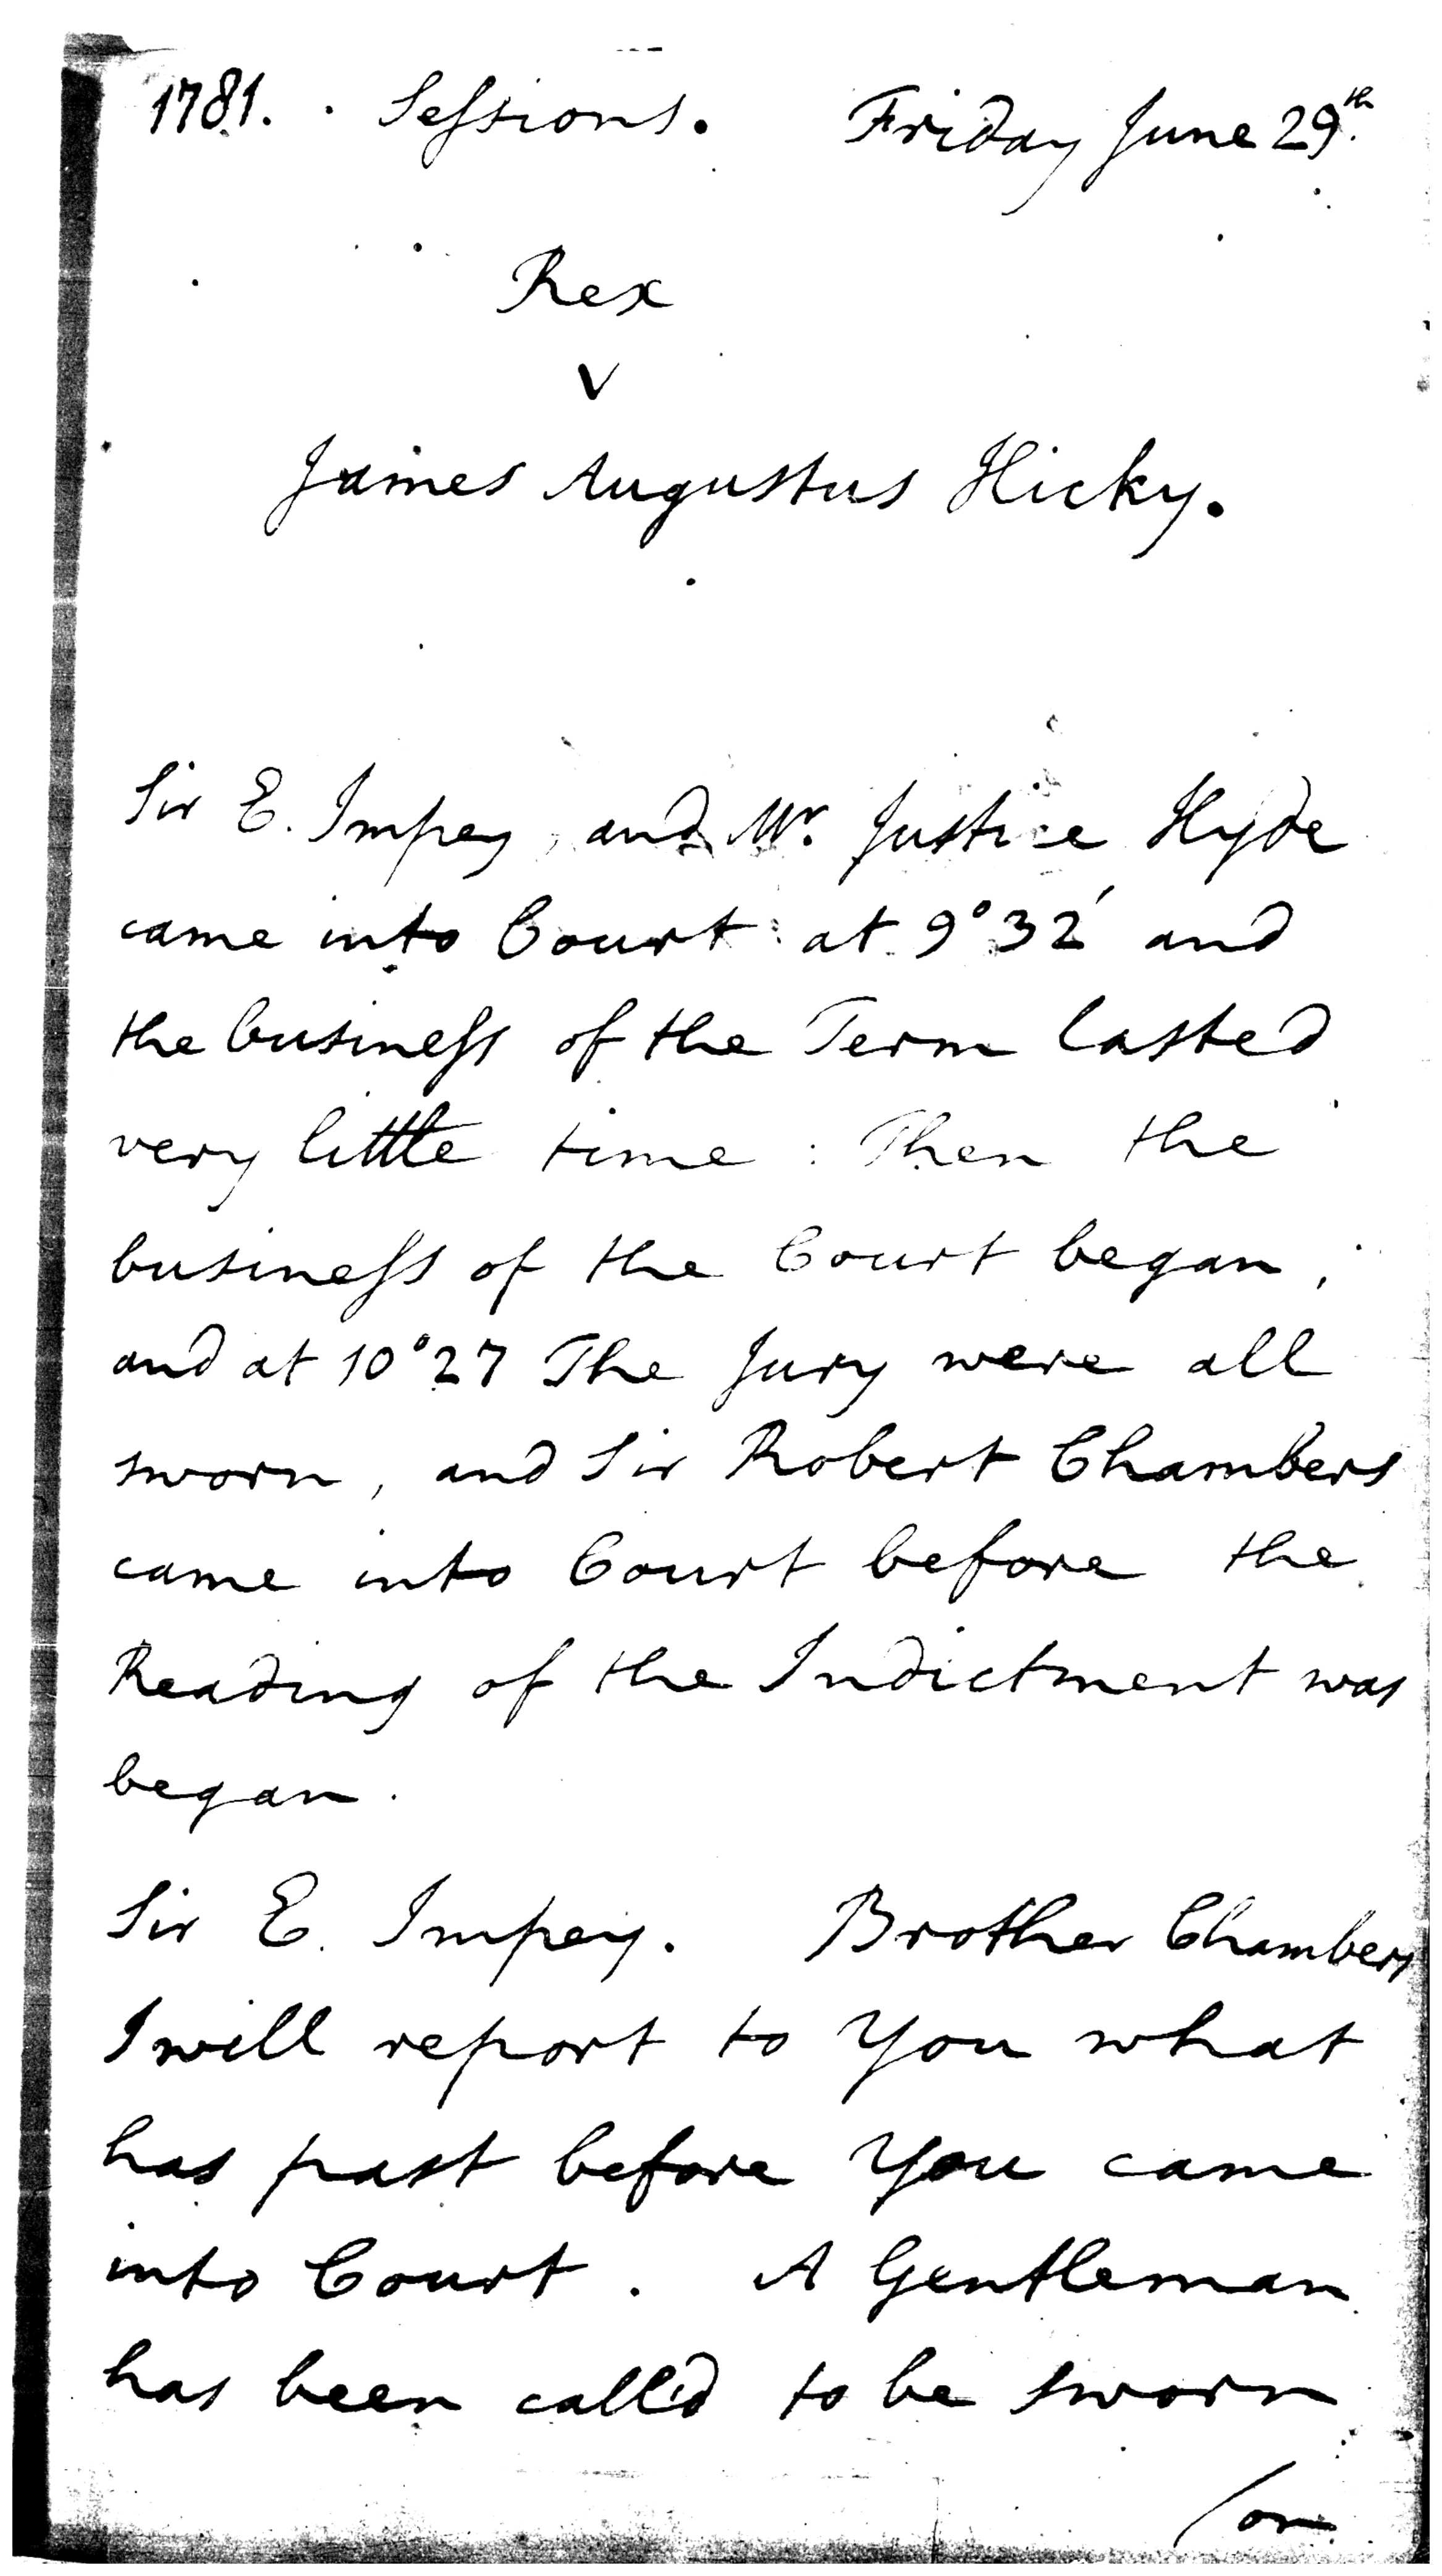 1781. Sessions. Friday June 29th.
Rex
v
James Augustus Hicky.
Sir E. Impey, and Mr. Justice Hyde
came into Court at 9°32′ and
the business of the Term lasted
very little time : Then the
business of the Court began ;
and at 10°27 The Jury were all
sworn, and Sir Robert Chambers
came into Court before the
Reading of the Indictment was
began.
Sir E. Impey. Brother Chambers
I will report to You what
has past before You came
into Court. A Gentleman
has been call'd to be sworn
/on